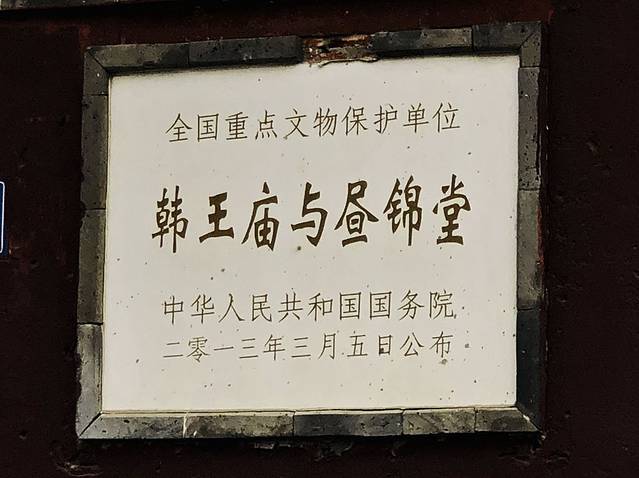 全国重点文物保护单位
韩王庙与昼锦堂
中华人民共和国国务院
二零一三年三月五日公布